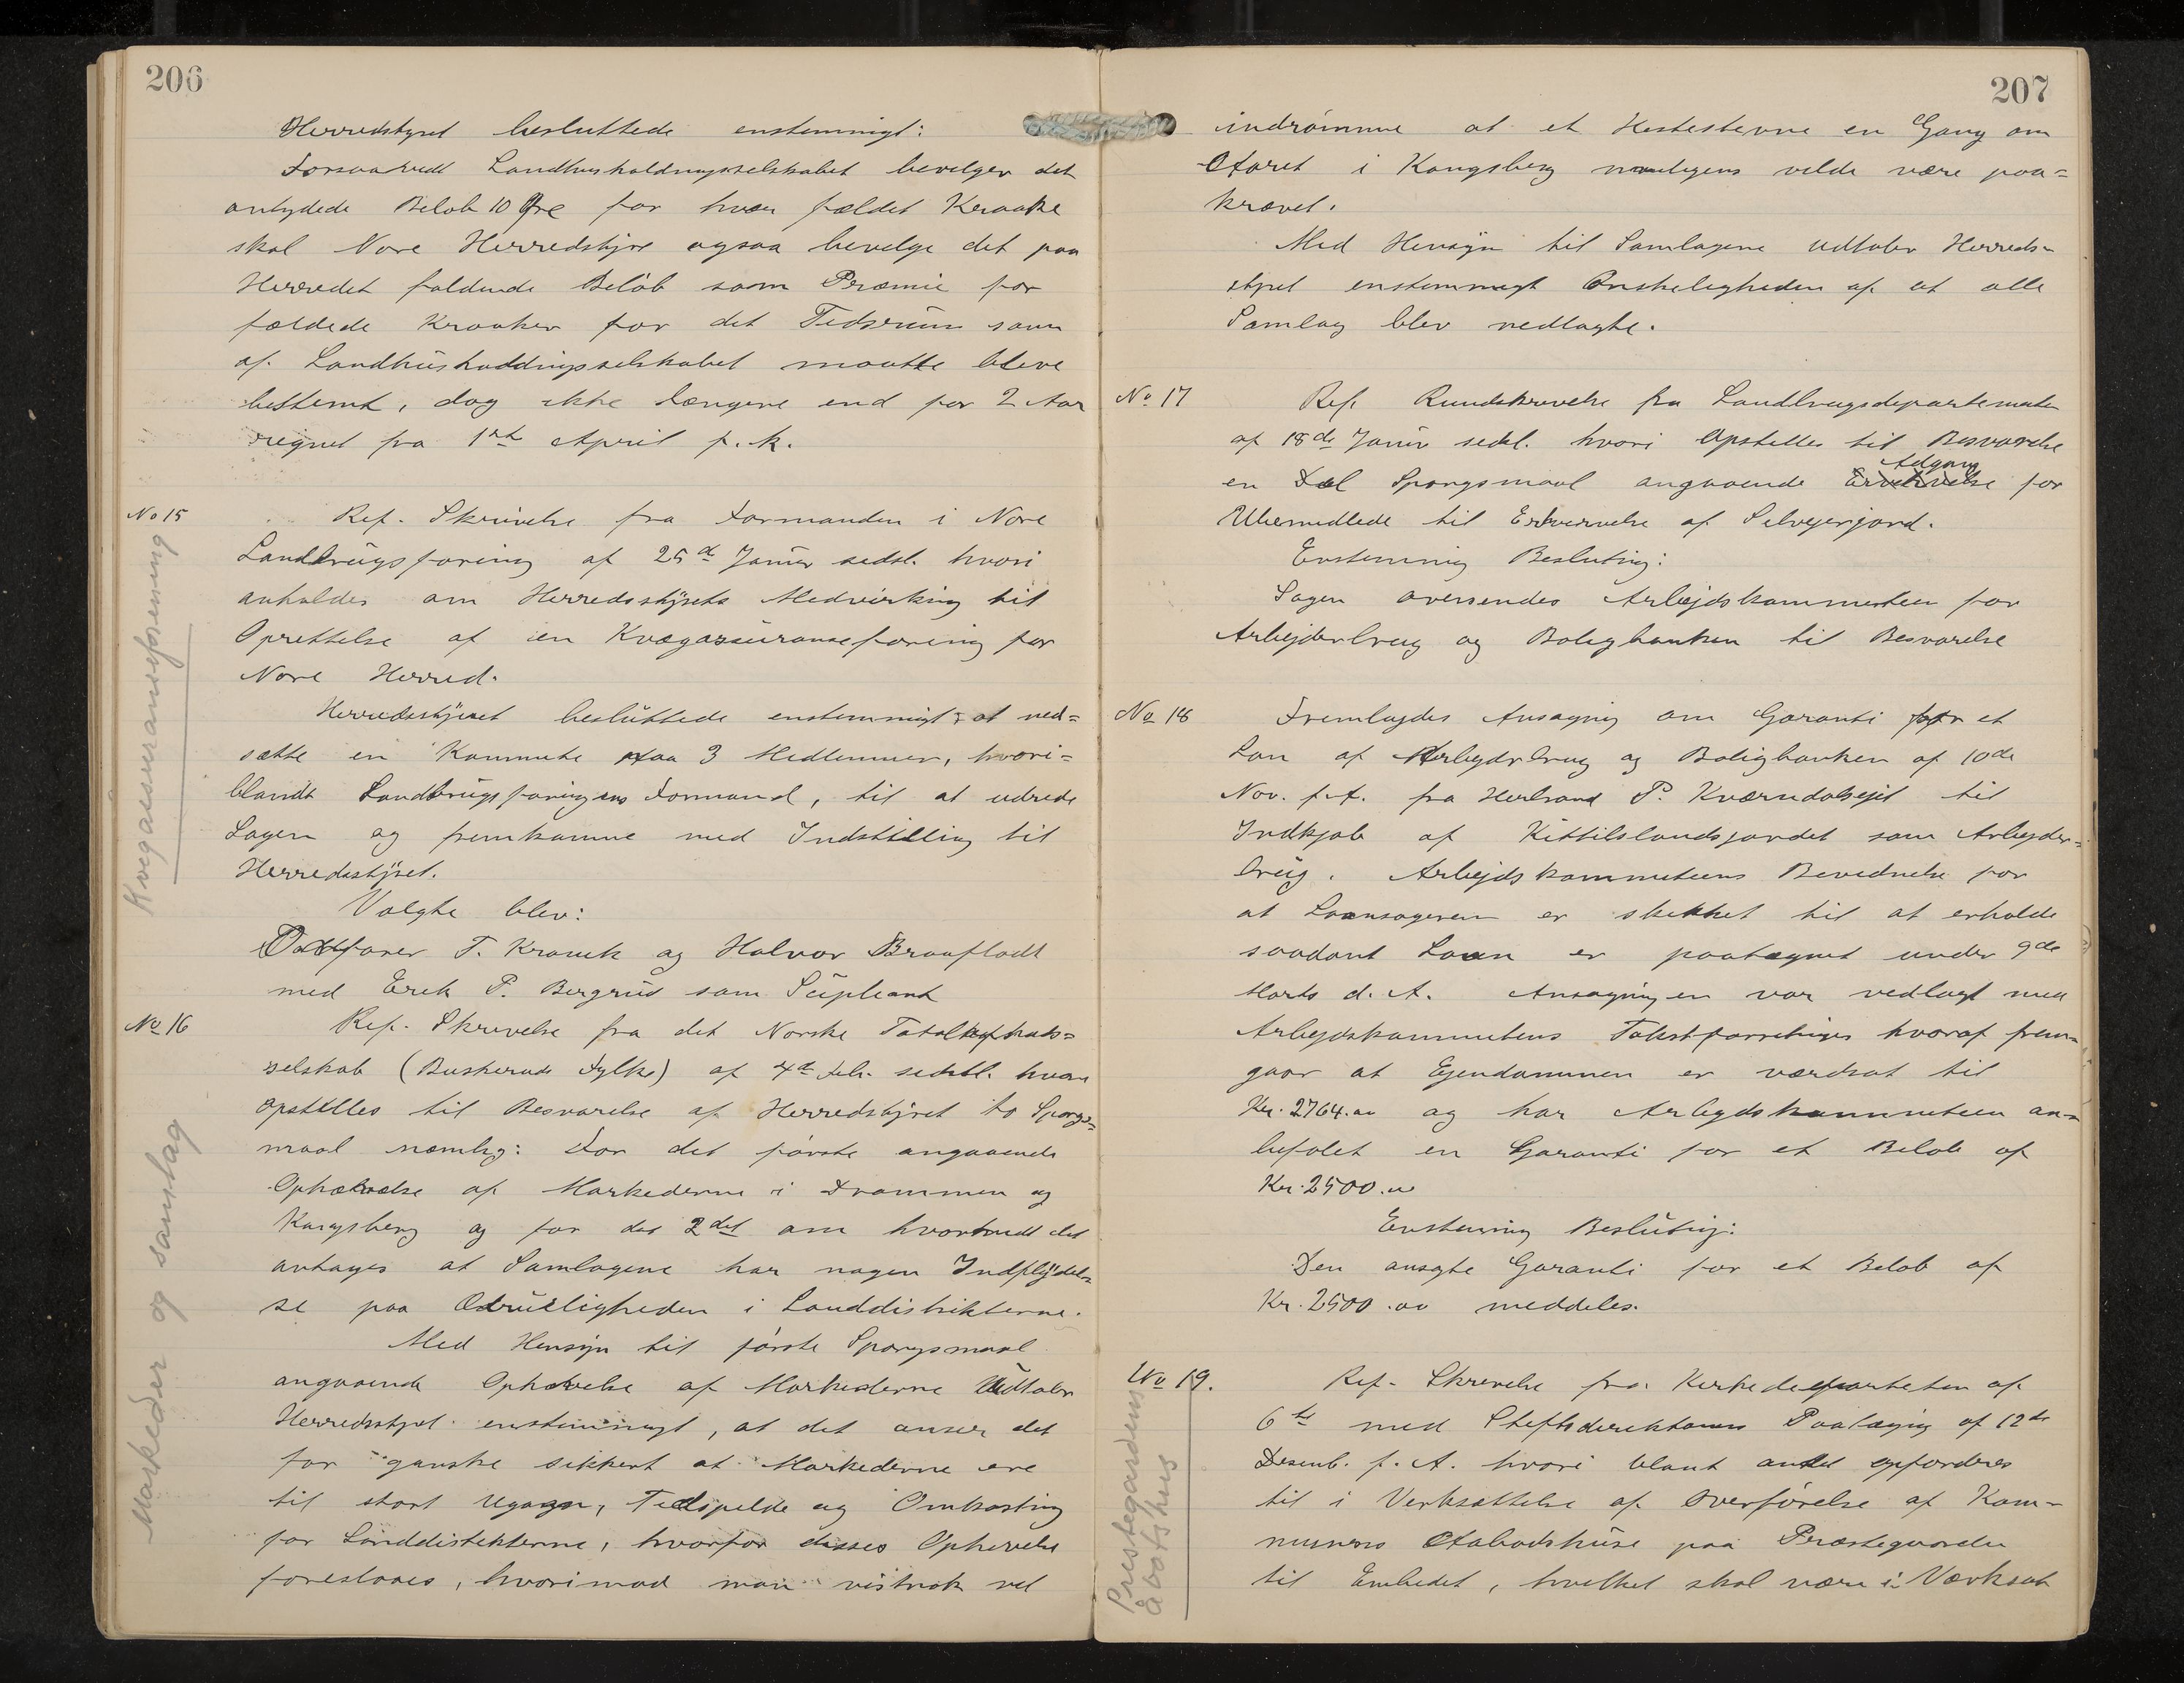 206
Herredstyret besluttede enstemmigt:
Forsaavidt Landhusholdningsselskabet bevilger det
antydede Beløb 10 Øre for hver fældet Kraake
skal Nore Herredstyre ogsaa bevilge det paa
Herredet faldende Beløb som Præmie for
fældede Kraaker for det Tidsrum som
af Landhusholdingsselskabet maatte blive
bestemt, dog ikke længere end for 2 Aar
regnet fra 1ste April f. k.
No 15
Kvegassuranseforening
Ref. Skrivelse fra Formanden i Nore
Landbrugsforening af 25de Januar sedst. hvori
anholdes om Herredsstyrets Medvirkning til
Oprettelse af en Kvægassuranseforening for
Nore Herred.
Herredsstyret besluttede enstemmigt at ned=
sætte en Kommite paa 3 Medlemmer, hvori=
blandt Landbrugsforingens Formand, til at udrede
Sagen og fremkomme med Indstilling til
Herredsstyret.
Valgte blev:
T. Kravik og Halvor Braafladt
med Erik P. Bergrud som Supleant
No 16
Markeder og samlag
Ref. Skrivelse fra det Norske Totalafholds=
selskab (Buskeruds Fylke) af 4de Feb. sedstl. hvori
opstilles til Besvarelse af Herredstyret to Sporgs=
maal nemlig: For det første angaaende
Ophævelse af Markederne i Drammen og
Kongsberg og for det 2det om hvorvidt det
antages at Samlagene har nogen Indflydel=
se paa Ædrueligheden i Landdistrikterne.
Med Hensyn til første Sporgsmaal
angaaende Ophævelse af Markederne Udtaler
Herredsstyret enstemmigt, at det anser det
for ganske sikkert at Markederne ere
til stort Ugagn, Tidspilde og Omkosting
for Landdistrikterne, hvorfor disses Ophevelse
foreslaaes, hvorimod man vistnok vel
207
indrømme at et Hestestevne en Gang om
Aaret i Kongsberg muligens vilde være paa=
krævet.
Med Hensyn til Samlagene udtaler Herreds=
styret enstemmigt Ønskeligheden af at alle
Samlag blev nedlagte.
No 17
Ref. Rundskrivelse fra Landbrugsdepartementet
af 18de Januar sedstl. hvori Opstilles til Besvarelse
en Del Sporgsmaal angaaende Ervervelse Adgang for
Ubemidlede til Erhvervelse af Selveierjord.
Enstemmig Beslutning:
Sagen oversendes Arbejdskommiteen for
Arbejderbrug og Boligbanken til Besvarelse
No 18
Fremlagdes Ansøgning om Garanti for et
Lån af Arbejderbrug og Boligbanken af 10de
Nov. f. A. fra Herbrand P. til
Indkjøb af Kittilslandsjordet som Arbejder=
brug. Arbejdskommiteens Bevidnelse for
at Laansøgeren er skikket til at erholde
saadant Laan er paategnet under 9de
Marts d. A. Ansøgningen var vedlagt med
Arbejdskommiteens Takstforretning hvoraf frem=
gaar at Ejendommen er værdsat til
Kr. 2764.00 og har Arbejdskommiteen an=
befalet en Garanti for et Beløb af
Kr. 2500.00
Enstemmig Beslutning:
Den ansøgte Garanti for et Beløb af
Kr. 2500.00 meddeles.
No 19.
Prestegardens
åbotshus
Ref. Skrivelse fra Kirkedepartetet af
6te med Stiftsdirektionens Paategning af 12te
Desemb. f. A. hvori blant andet opfordres
til i Verksættelse af Overførelse af Kom=
munens Aabodshuse paa Præstegaarden
til Embedet, hvilket skal være i Værksat